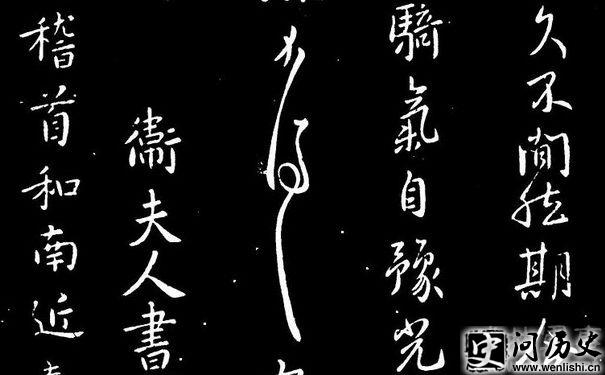 久不間期
騎氣自豫光
衛夫人書
稽首和南近
史 问历史
www.wenlishi.cn